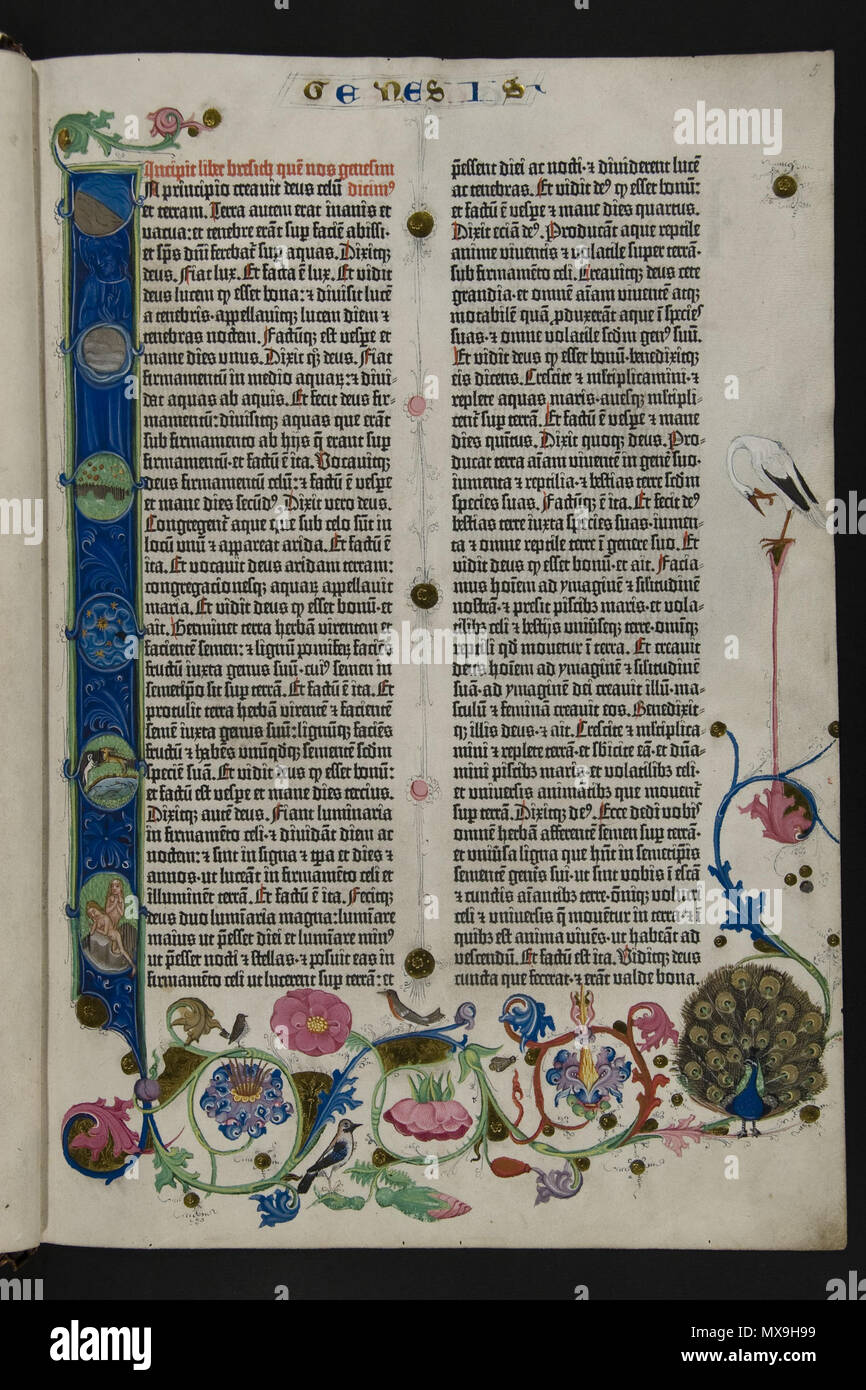 GENESIS
5
Incipit liber bresith quē nos genesim
In principio creavit deus celū dicim⁹
et terram. Terra autem erat inanis et
vacua: et tenebre erāt sup faciē abissi:
et sp̄s dn̄i ferebat̄ sup aquas. Dixitq̄
deus. Fiat lux. Et facta ē lux. Et vidit
deus lucem ꝙ esset bona: ⁊ divisit lucē
a tenebris· appellavitq̄ lucem diem ⁊
tenebras noctem. Factūq̄ est vespe et
mane dies vnus. Dixit q̄ꝫ deus. Fiat
firmamentū in medio aquaꝝ: ⁊ divi-
dat aquas ab aquis. Et fecit deus fir-
mamentū: divisitq̄ aquas que erāt
sub firmamento ab hijs q̄ erant sup
firmamentū· et factū ē ita. Vocavitq̄
deus firmamentū celū: ⁊ factū ē vespe
et mane dies secūd⁹. Dixit vero deus.
Congregent̄ aque que sub celo sūt in
locū vnū ⁊ appareat arida. Et factū ē
ita. Et vocavit deus aridam terram:
congregacionesq̄ aquaꝝ appellavit
maria. Et vidit deus ꝙ esset bonū· et
ait. Germinet terra herbā virentem et
facientē semen: ⁊ lignū pomiferꝫ faciēs
fructū iuxta genus suū· cui⁹ semen in
semetipo sit sup terrā. Et factū ē ita. Et
protulit terra herbā virentē ⁊ facientē
semē iuxta genus suū: lignūq̄ faciēs
fructū ⁊ habēs vnūqdq̄ sementē scdm
speciē suā. Et vidit deus ꝙ esset bonū:
et factū est vespe et mane dies tercius.
Dixitq̄ autē deus. Fiant luminaria
in firmamēto celi· ⁊ dividāt diem ac
noctem: ⁊ sint in signa ⁊ tp̄a et dies ⁊
annos· ut luceāt in firmamēto celi et
illuminēt terrā. Et factū ē ita. Fecitq̄
deus duo lumīaria magna: lumīare
maius ut p̄esset diei et lumīare min⁹
ut p̄esset nocti ⁊ stellas· ⁊ posuit eas in
firmamēto celi ut lucerent sup terrā: et
p̄essent diei ac nocti· ⁊ dividerent lucē
ac tenebras. Et vidit de⁹ ꝙ esset bonū:
et factū ē vespe ⁊ mane dies quartus.
Dixit eciā de⁹. Producāt aque reptile
anime viventis ⁊ volatile super terrā·
sub firmamēto celi. Creavitq̄ deus cete
grandia· et omnē aīam viventē atq̄
motabilē quā pduxerāt aque ī species
suas· ⁊ omne volatile scdm gen⁹ suū.
Et vidit deus ꝙ esset bonū· benedixitq̄
eis dicens. Crescite ⁊ mltiplicamini· ⁊
replete aquas maris· avesq̄ mltipli-
cent̄ sup terrā. Et factū ē vespe ⁊ mane
dies quītus. Dixit quoq̄ deus. Pro-
ducat terra aīam viventē in genē suo·
iumenta ⁊ reptilia· ⁊ bestias terre scdm
species suas. Factūq̄ ē ita. Et fecit de⁹
bestias terre iuxta species suas· iumen-
ta ⁊ omne reptile terre ī genere suo. Et
vidit deus ꝙ esset bonū· et ait. Facia-
mus hoīem ad ymaginē ⁊ silitudinē
nostrā· ⁊ presit piscibꝫ maris· et vola-
tilibꝫ celi ⁊ bestijs vniūseq̄ terre· omīq̄
reptili qd movetur ī terra. Et creavit
deus hoīem ad ymaginē ⁊ silitudinē
suā· ad ymaginē dei creavit illū· ma-
sculū ⁊ feminā creavit eos. Benedixit-
q̄ illis deus· ⁊ ait. Crescite ⁊ mltiplica-
mini ⁊ replete terrā· et sbicite eā· et dn̄a-
mini piscibꝫ maris· et volatilibꝫ celi·
et vniversis animātibꝫ que movent̄
sup terrā. Dixitq̄ de⁹. Ecce dedi vobis
omnē herbā afferentē semen sup terrā·
et vniūsa ligna que hn̄t in semetipis
sementē genīs sui· ut sint vobis ī escā
⁊ cunctis aīantibꝫ terre· omīq̄ volucri
celi ⁊ vniversis q̄ movētur in terra· ⁊ ī
quibꝫ est anima vivēs· ut habeāt ad
vescendū. Et factū est ita. Viditq̄ deus
cuncta que fecerat· ⁊ erāt valde bona.
alamy
Image ID: MX9H99
www.alamy.com